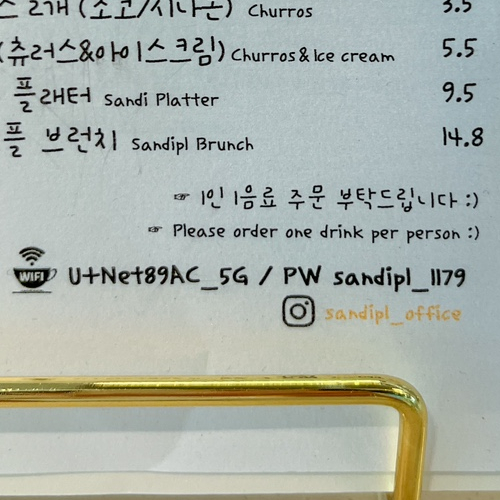 스 2개 (소고/시나몬) Churros 3.5
(츄러스&아이스크림) Churros & Ice cream 5.5
플 래터 Sandi Platter 9.5
플 브런치 Sandipl Brunch 14.8
☞ 1인 1음료 주문 부탁드립니다 :)
☞ Please order one drink per person :)
WIFI U+Net89AC_5G / PW sandipl_1179
sandipl_office